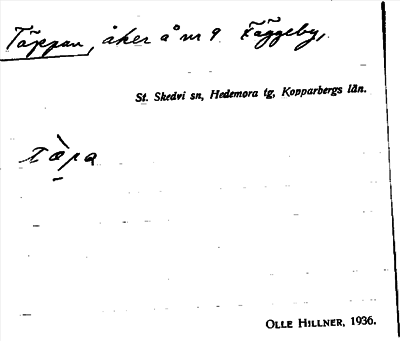 Täppan, åker å nr 9 Fäggeby,
St. Skedvi sn, Hedemora tg, Kopparbergs län.
OLLE HILLNER, 1936.